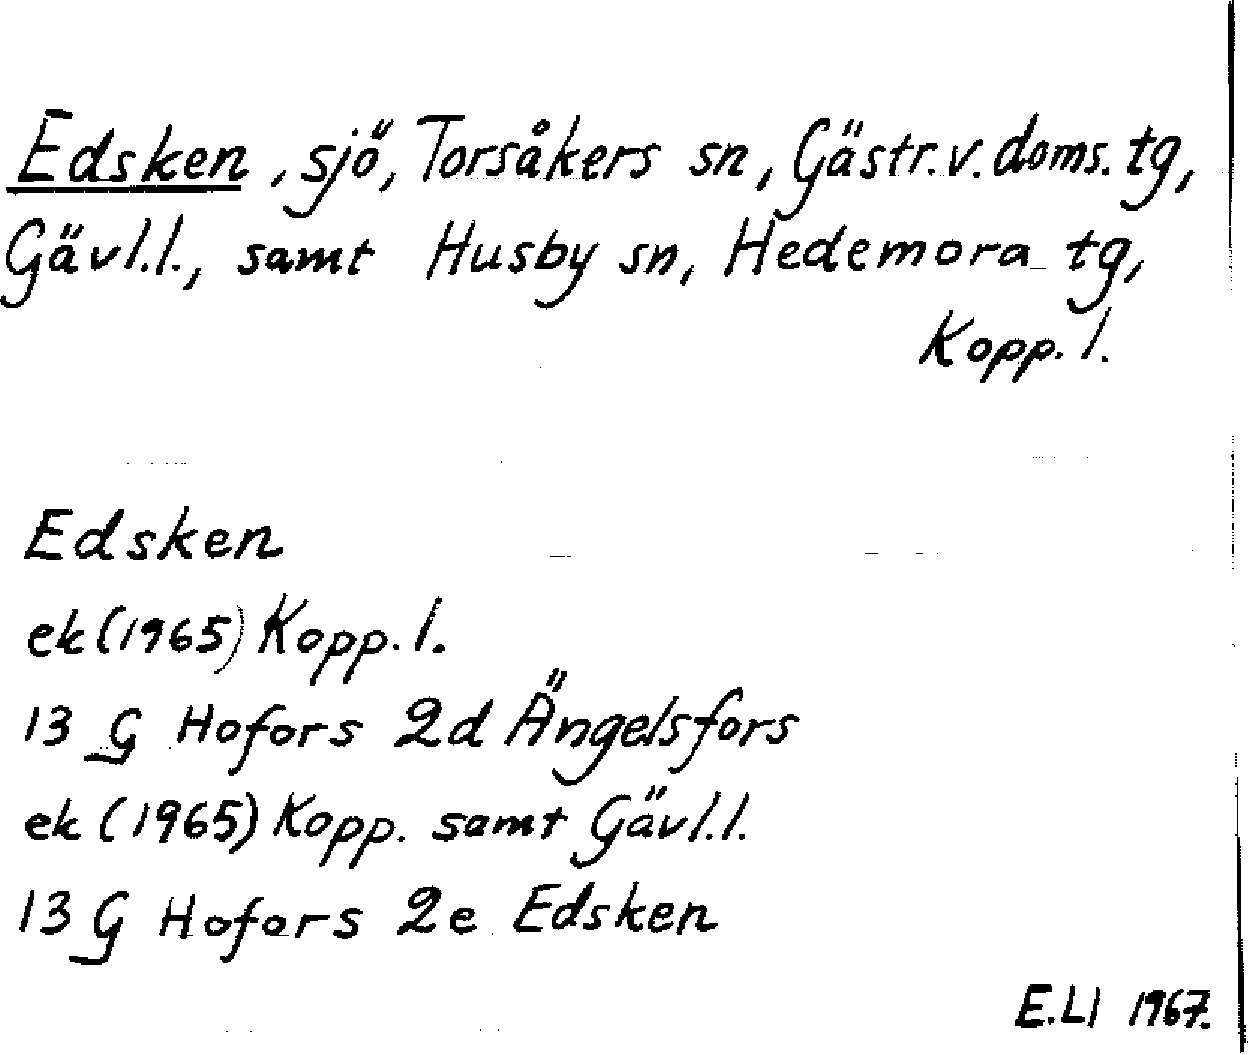 Edsken, sjö, Torsåkers sn, Gästr. v. doms. tg,
Gävl. l., samt Husby sn, Hedemora tg,
Kopp. l.
Edsken
ek (1965) Kopp. l.
13 G Hofors 2d Ängelsfors
ek (1965) Kopp. samt Gävl. l.
13 G Hofors 2e Edsken
E. Ll 1967.